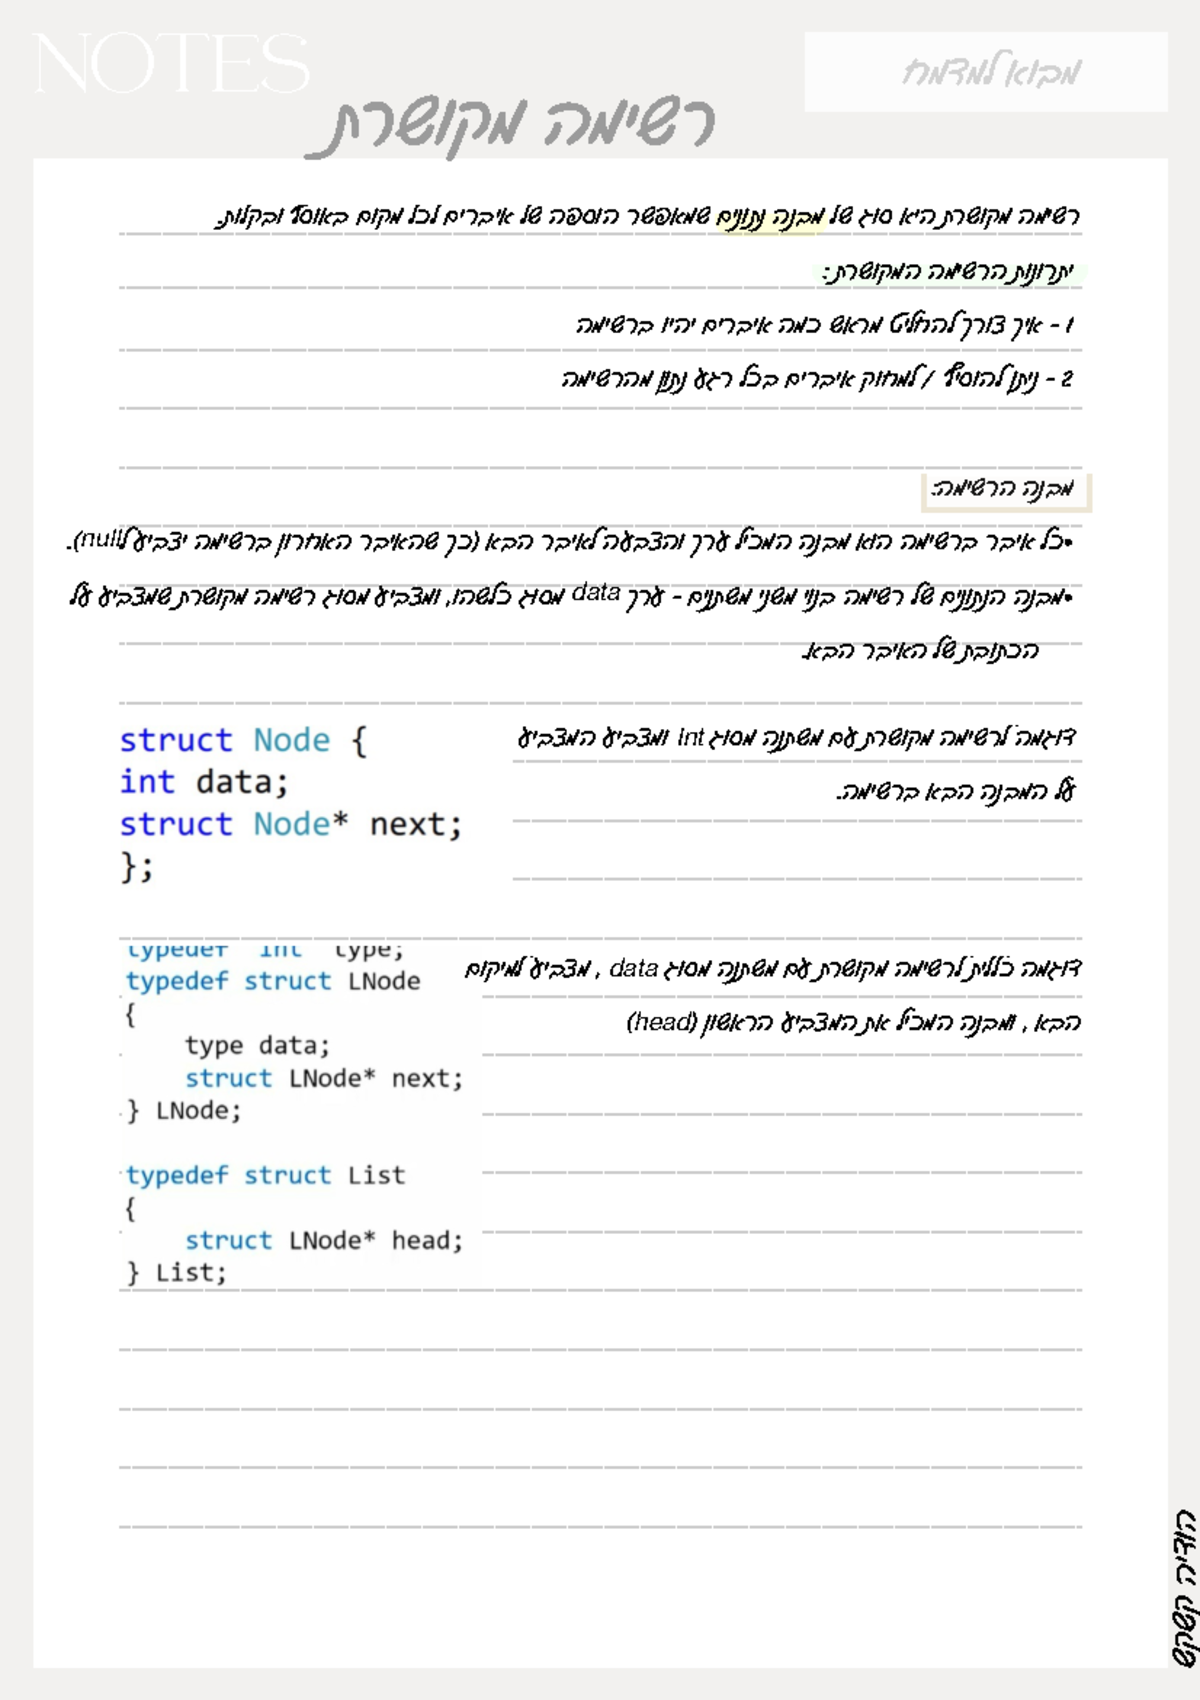 NOTES
מבוא למדמח
רשימה מקושרת
רשימה מקושרת היא סוג של מבנה נתונים שמאפשר הוספה של איברים לכל מקום באוסף ובקלות.
יתרונות הרשימה המקושרת:
1 - איך צורך להחליט מראש כמה איברים יהיו ברשימה
2 - ניתן להוסיף / למחוק איברים בכל רגע נתון מהרשימה
מבנה הרשימה:
•כל איבר ברשימה הוא מבנה המכיל ערך והצבעה לאיבר הבא (כך שהאיבר האחרון ברשימה יצביע לnull).
•מבנה הנתונים של רשימה בנוי משני משתנים - ערך data מסוג כלשהו, ומצביע מסוג רשימה מקושרת שמצביע על
הכתובת של האיבר הבא.
דוגמה לרשימה מקושרת עם משתנה מסוג int ומצביע המצביע
על המבנה הבא ברשימה.
struct Node {
int data;
struct Node* next;
};
דוגמה כללית לרשימה מקושרת עם משתנה מסוג data , מצביע למיקום
הבא , ומבנה המכיל את המצביע הראשון (head)
typedef int type;
typedef struct LNode
{
type data;
struct LNode* next;
} LNode;
typedef struct List
{
struct LNode* head;
} List;